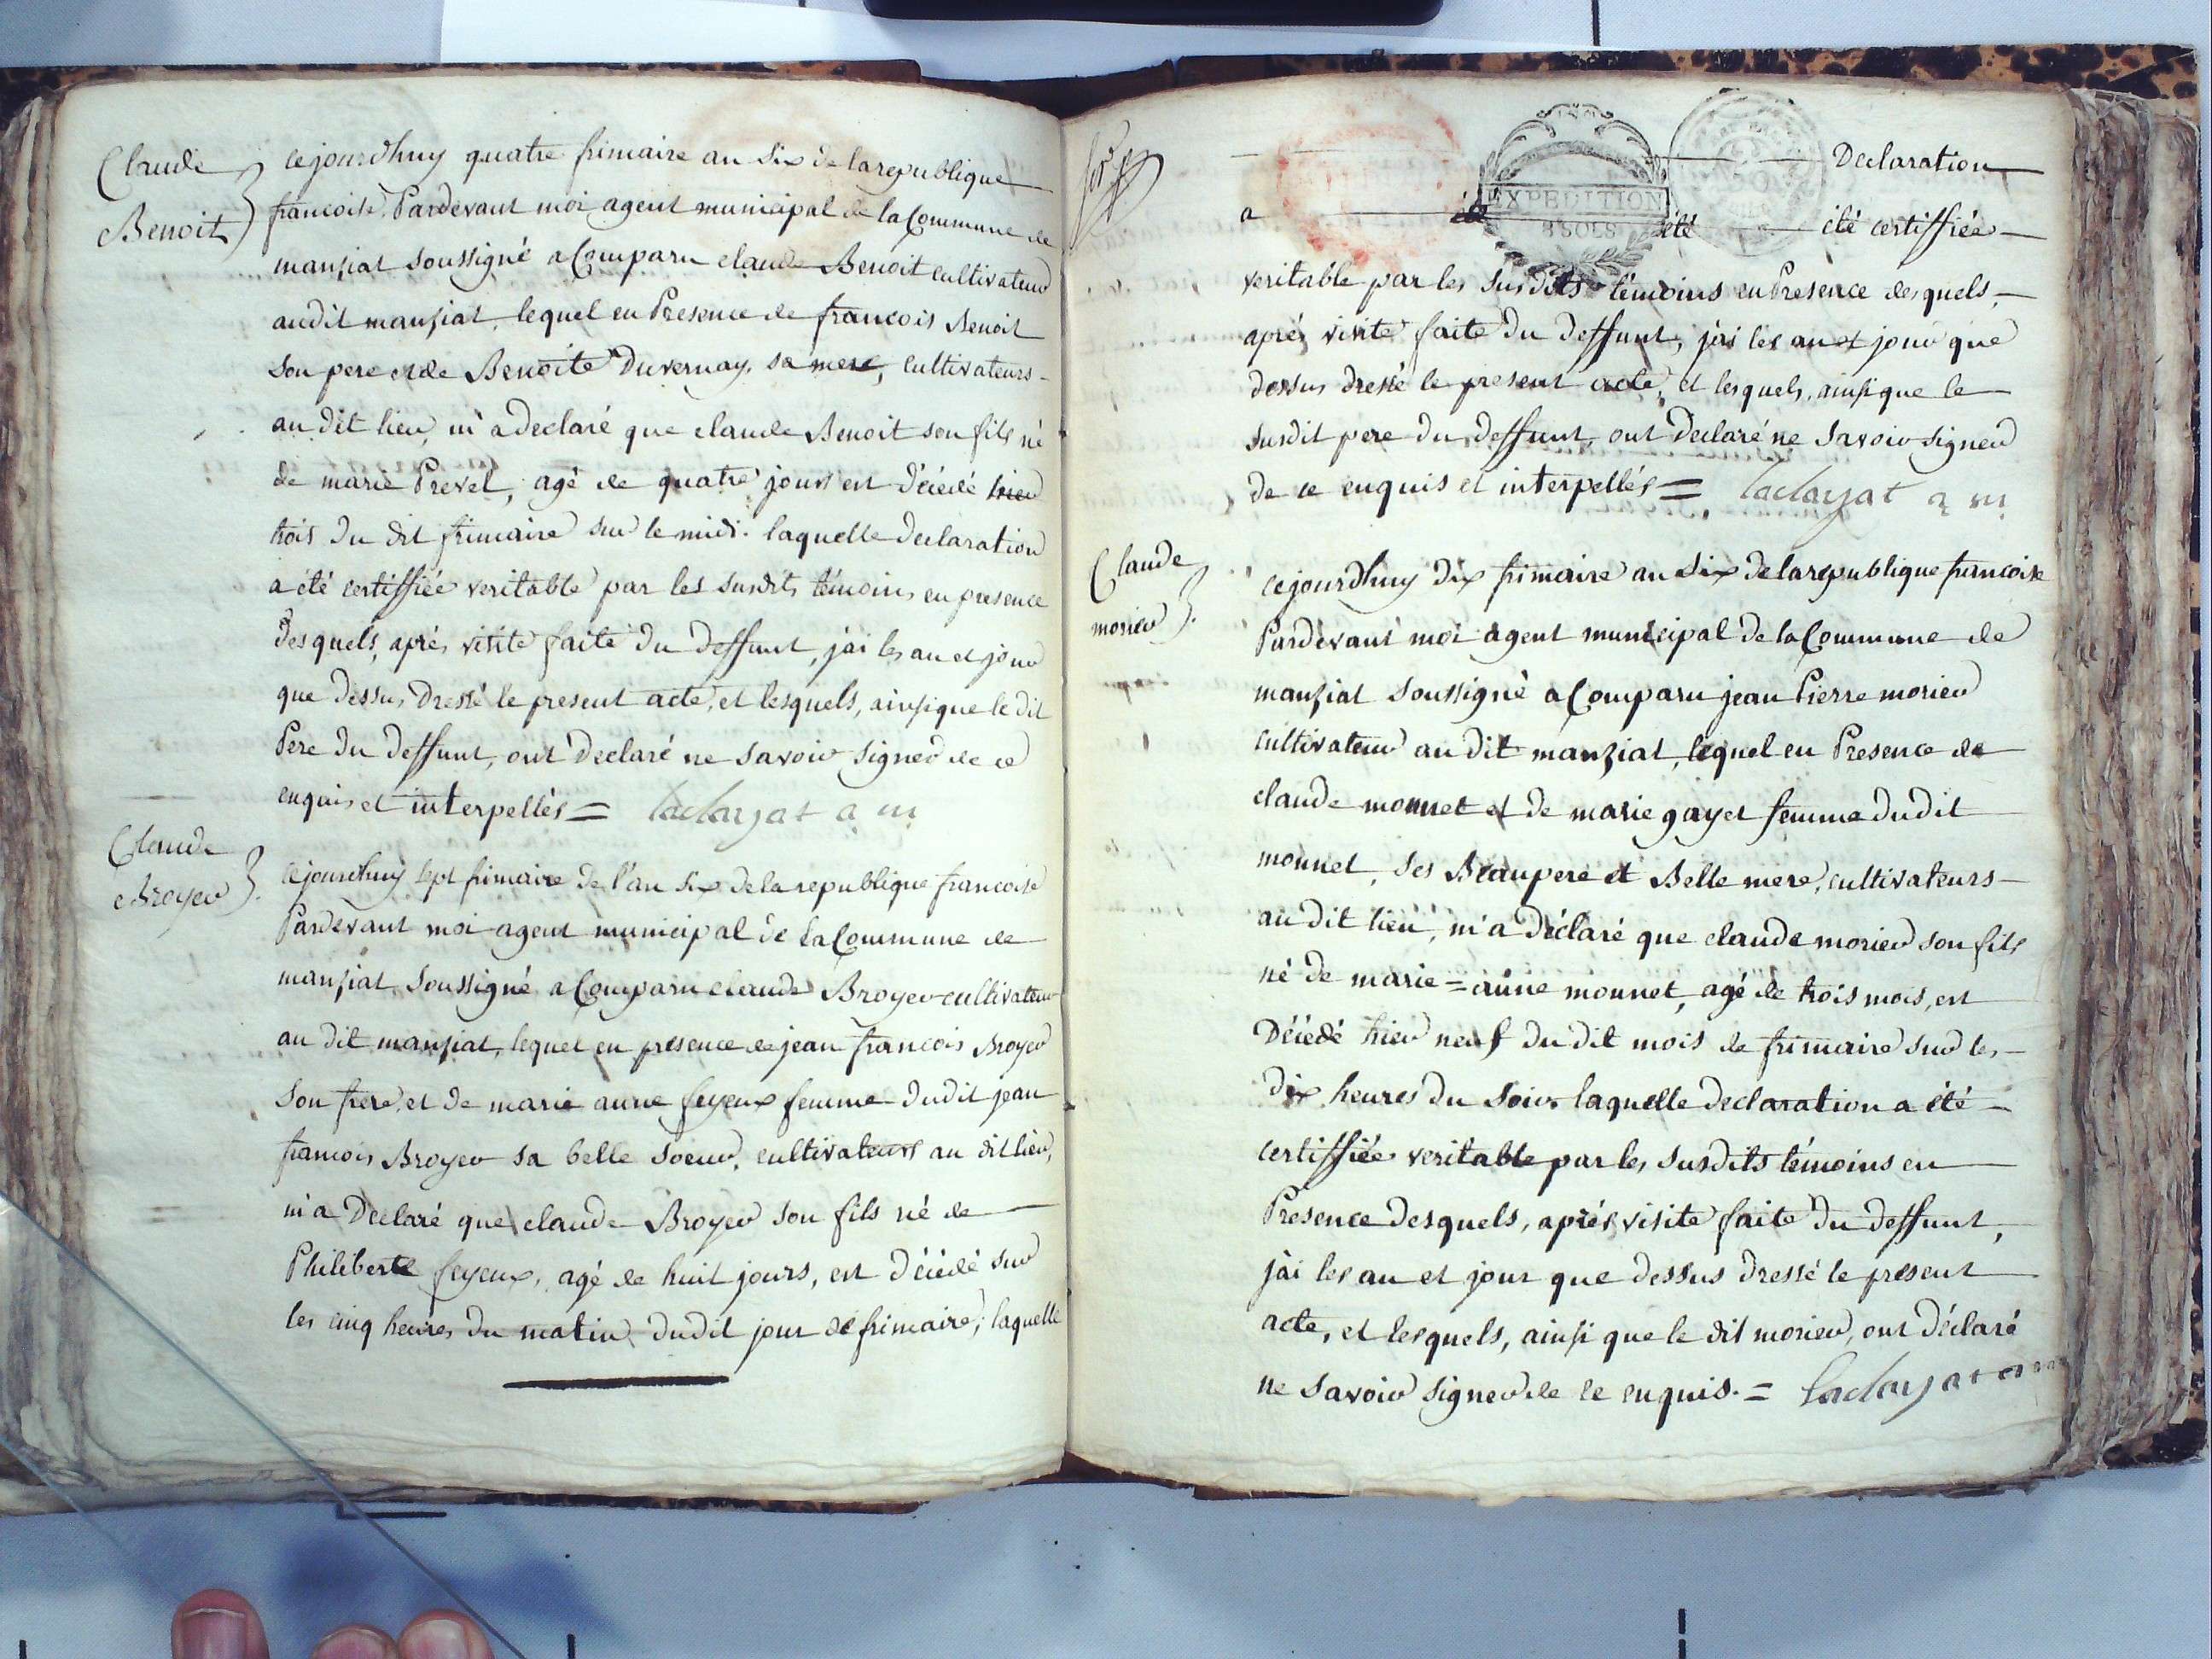 Claude
Benoit
cejourdhuy quatre frimaire an Six de la republique
francoise, Pardevant moi agent municipal de la Commune de
manziat soussigné a Comparu claude Benoit cultivateur
audit manziat, lequel en Presence de francois Benoit
son pere et de Benoite Duvernay sa mere, cultivateurs
au dit lieu, m'a declaré que claude Benoit son fils né
de marie Prevel, agé de quatre jours est décédé hier
trois du dit frimaire sur le midi. laquelle declaration
a été certiffiée veritable par les susdits témoins, en presence
desquels, aprés visite faite du deffunt, j'ai les an et jour
que dessus dressé le present acte, et lesquels, ainsi que le dit
Pere du deffunt, ont declaré ne savoir signer de ce
enquis et interpellés =
Claude
Broyer
cejourdhuy sept frimaire de l'an six de la republique francoise
Pardevant moi agent municipal de la Commune de
manziat soussigné a Comparu claude Broyer cultivateur
au dit manziat, lequel en presence de jean francois Broyer
son frere, et de marie anne feyeux femme dudit jean
francois Broyer sa belle soeur, cultivateurs au dit lieu,
m'a declaré que claude Broyer son fils né de
Philiberte feyeux, agé de huit jours, est décédé sur
les cinq heures du matin dudit jour de frimaire; laquelle
Declaration
EXPEDITION
8 SOLS
a été été certiffiée
veritable par les susdits témoins en Presence desquels,
aprés visite faite du deffunt, j'ai les an et jour que
dessus dressé le present acte, et lesquels, ainsi que le
susdit pere du deffunt, ont declaré ne savoir signer
de ce enquis et interpellés =
Claude
morier
cejourdhuy dix frimaire an six de la republique francoise
Pardevant moi agent municipal de la Commune de
manziat soussigné a Comparu jean Pierre morier
cultivateur au dit manziat, lequel en Presence de
claude monnet et de marie gayet femme dudit
monnet, ses Beaupere et Belle mere, cultivateurs
au dit lieu, m'a déclaré que claude morier son fils
né de marie = anne monnet, agé de trois mois, est
Décédé hier neuf du dit mois de frimaire sur les
dix heures du soir. laquelle declaration a été
certiffiée veritable par les susdits témoins en
Presence desquels, aprés visite faite du deffunt,
j'ai les an et jour que dessus dressé le present
acte, et lesquels, ainsi que le dit morier, ont déclaré
ne savoir signer de ce enquis. =